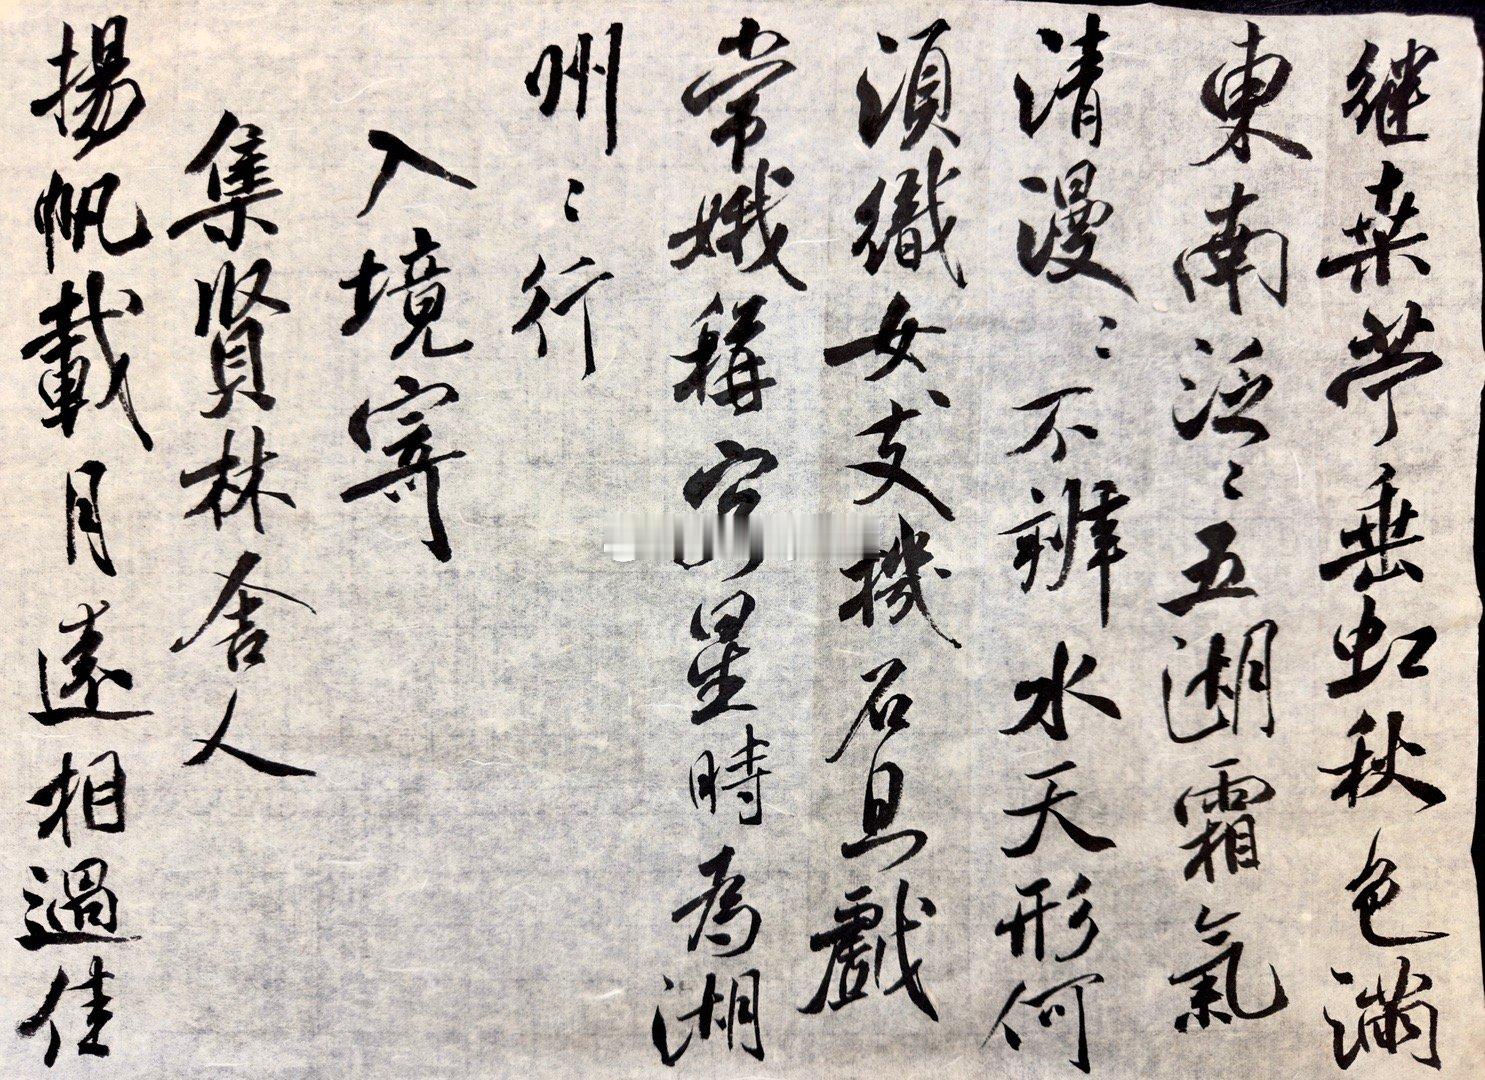 继桑苧垂虹秋色滿
東南泛〻五湖霜氣
清漫〻不辨水天形何
須織女支機石且戲
常娥稱客星時為湖
州之行
入境寄
集賢林舍人
揚帆載月遠相過佳